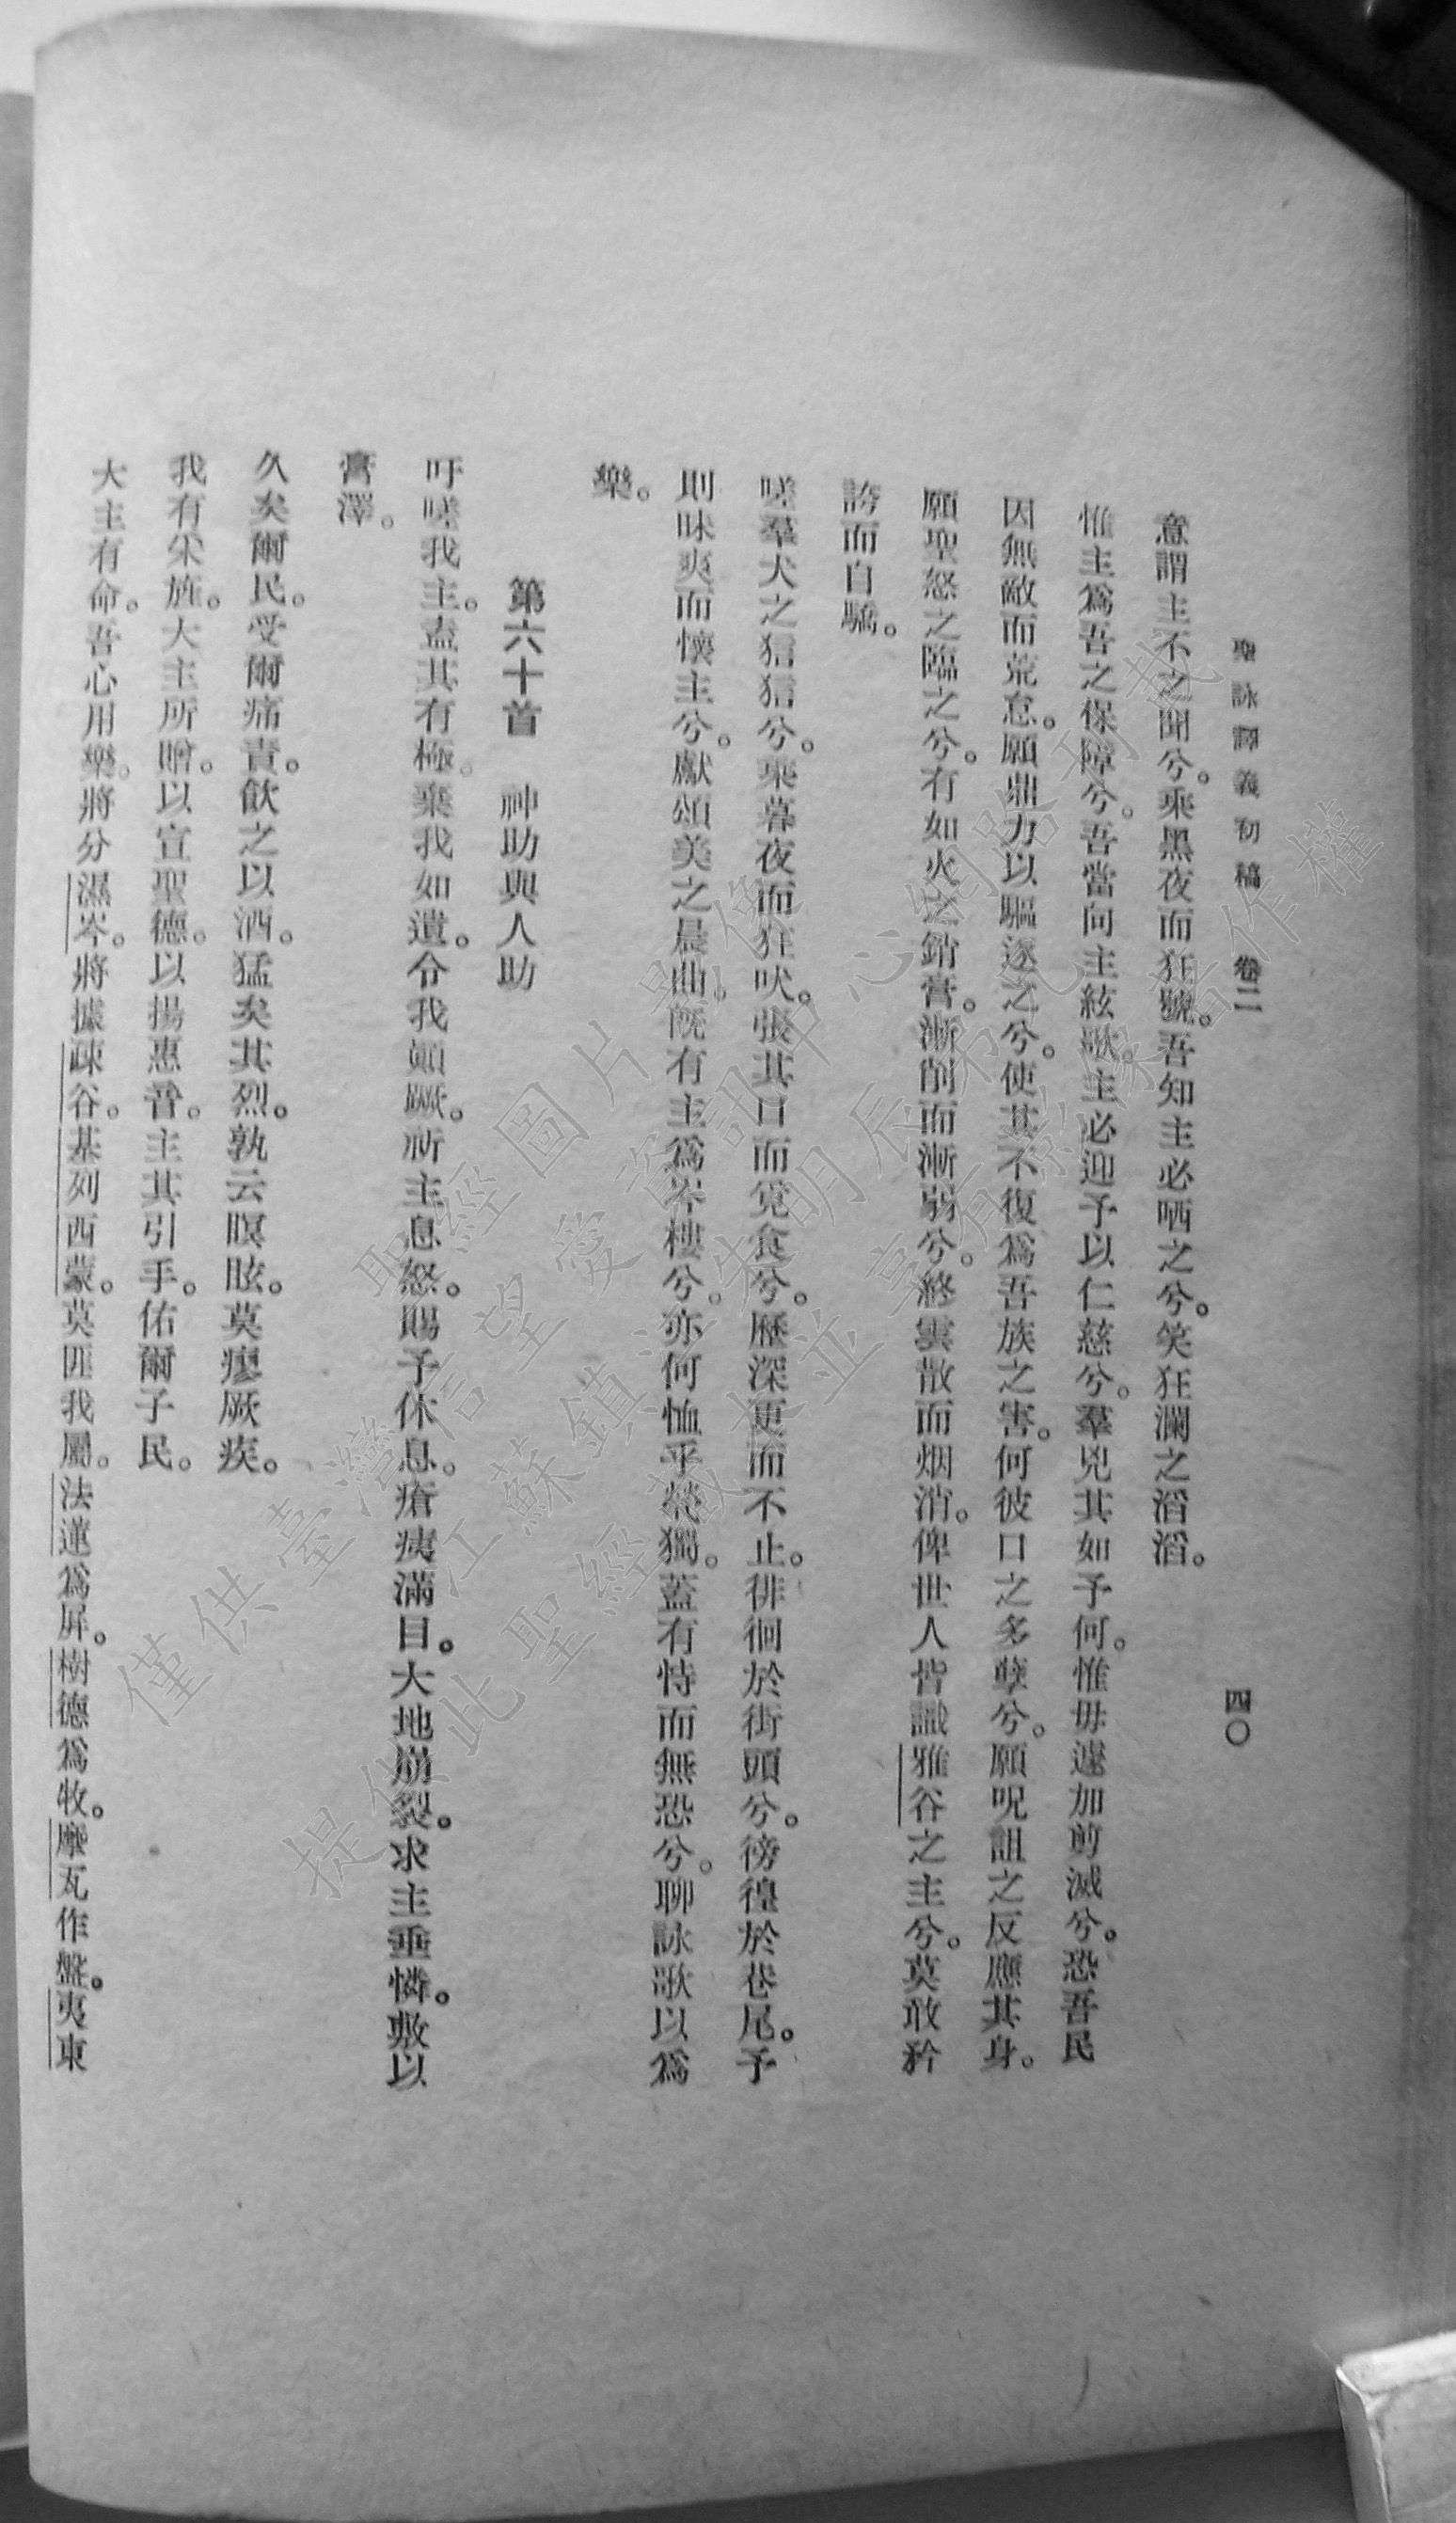 聖詠譯義初稿　卷二　四〇
意謂主不之聞兮。乘黑夜而狂號。吾知主必哂之兮。笑狂瀾之滔滔。
惟主爲吾之保障兮。吾當向主絃歌。主必迎予以仁慈兮。羣兇其如予何。惟毋遽加剪滅兮。恐吾民
因無敵而荒怠。願鼎力以驅逐之兮。使其不復爲吾族之害。何彼口之多孽兮。願呪詛之反應其身。
願聖怒之臨之兮。有如火之銷膏。漸削而漸弱兮。終雲散而烟消。俾世人皆識雅谷之主兮。莫敢矜
誇而自驕。
嗟羣犬之狺狺兮。乘暮夜而狂吠。張其口而覓食兮。歷深更而不止。徘徊於街頭兮。徬徨於巷尾。予
則昧爽而懷主兮。獻頌美之晨曲。旣有主爲岑樓兮。亦何恤乎煢獨。蓋有恃而無恐兮。聊詠歌以爲
樂。
第六十首　神助與人助
吁嗟我主。盍其有極。棄我如遺。令我顚蹶。祈主息怒。賜予休息。瘡痍滿目。大地崩裂。求主垂憐。敷以
膏澤。
久矣爾民。受爾痛責。飲之以酒。猛矣其烈。孰云瞑眩。莫瘳厥疾。
我有朱旌。大主所贈。以宣聖德。以揚惠音。主其引手。佑爾子民。
大主有命。吾心用樂。將分濕岑。將據疎谷。基列西蒙。莫匪我屬。法蓮爲屏。樹德爲牧。摩瓦作盤。夷東
僅供臺灣信望愛資訊中心網路刊載